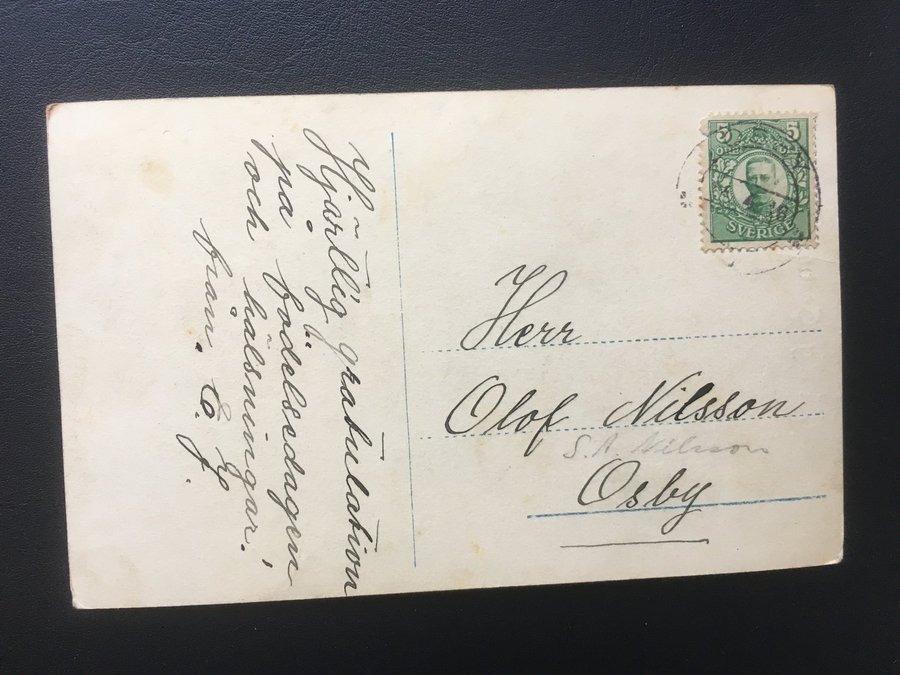 Hjärtlig gratulation
på födelsedagen
och hälsningar!
från. E. J.
5 5
SVERIGE
Herr
Olof Nilsson
S. A. Nilsson
Osby